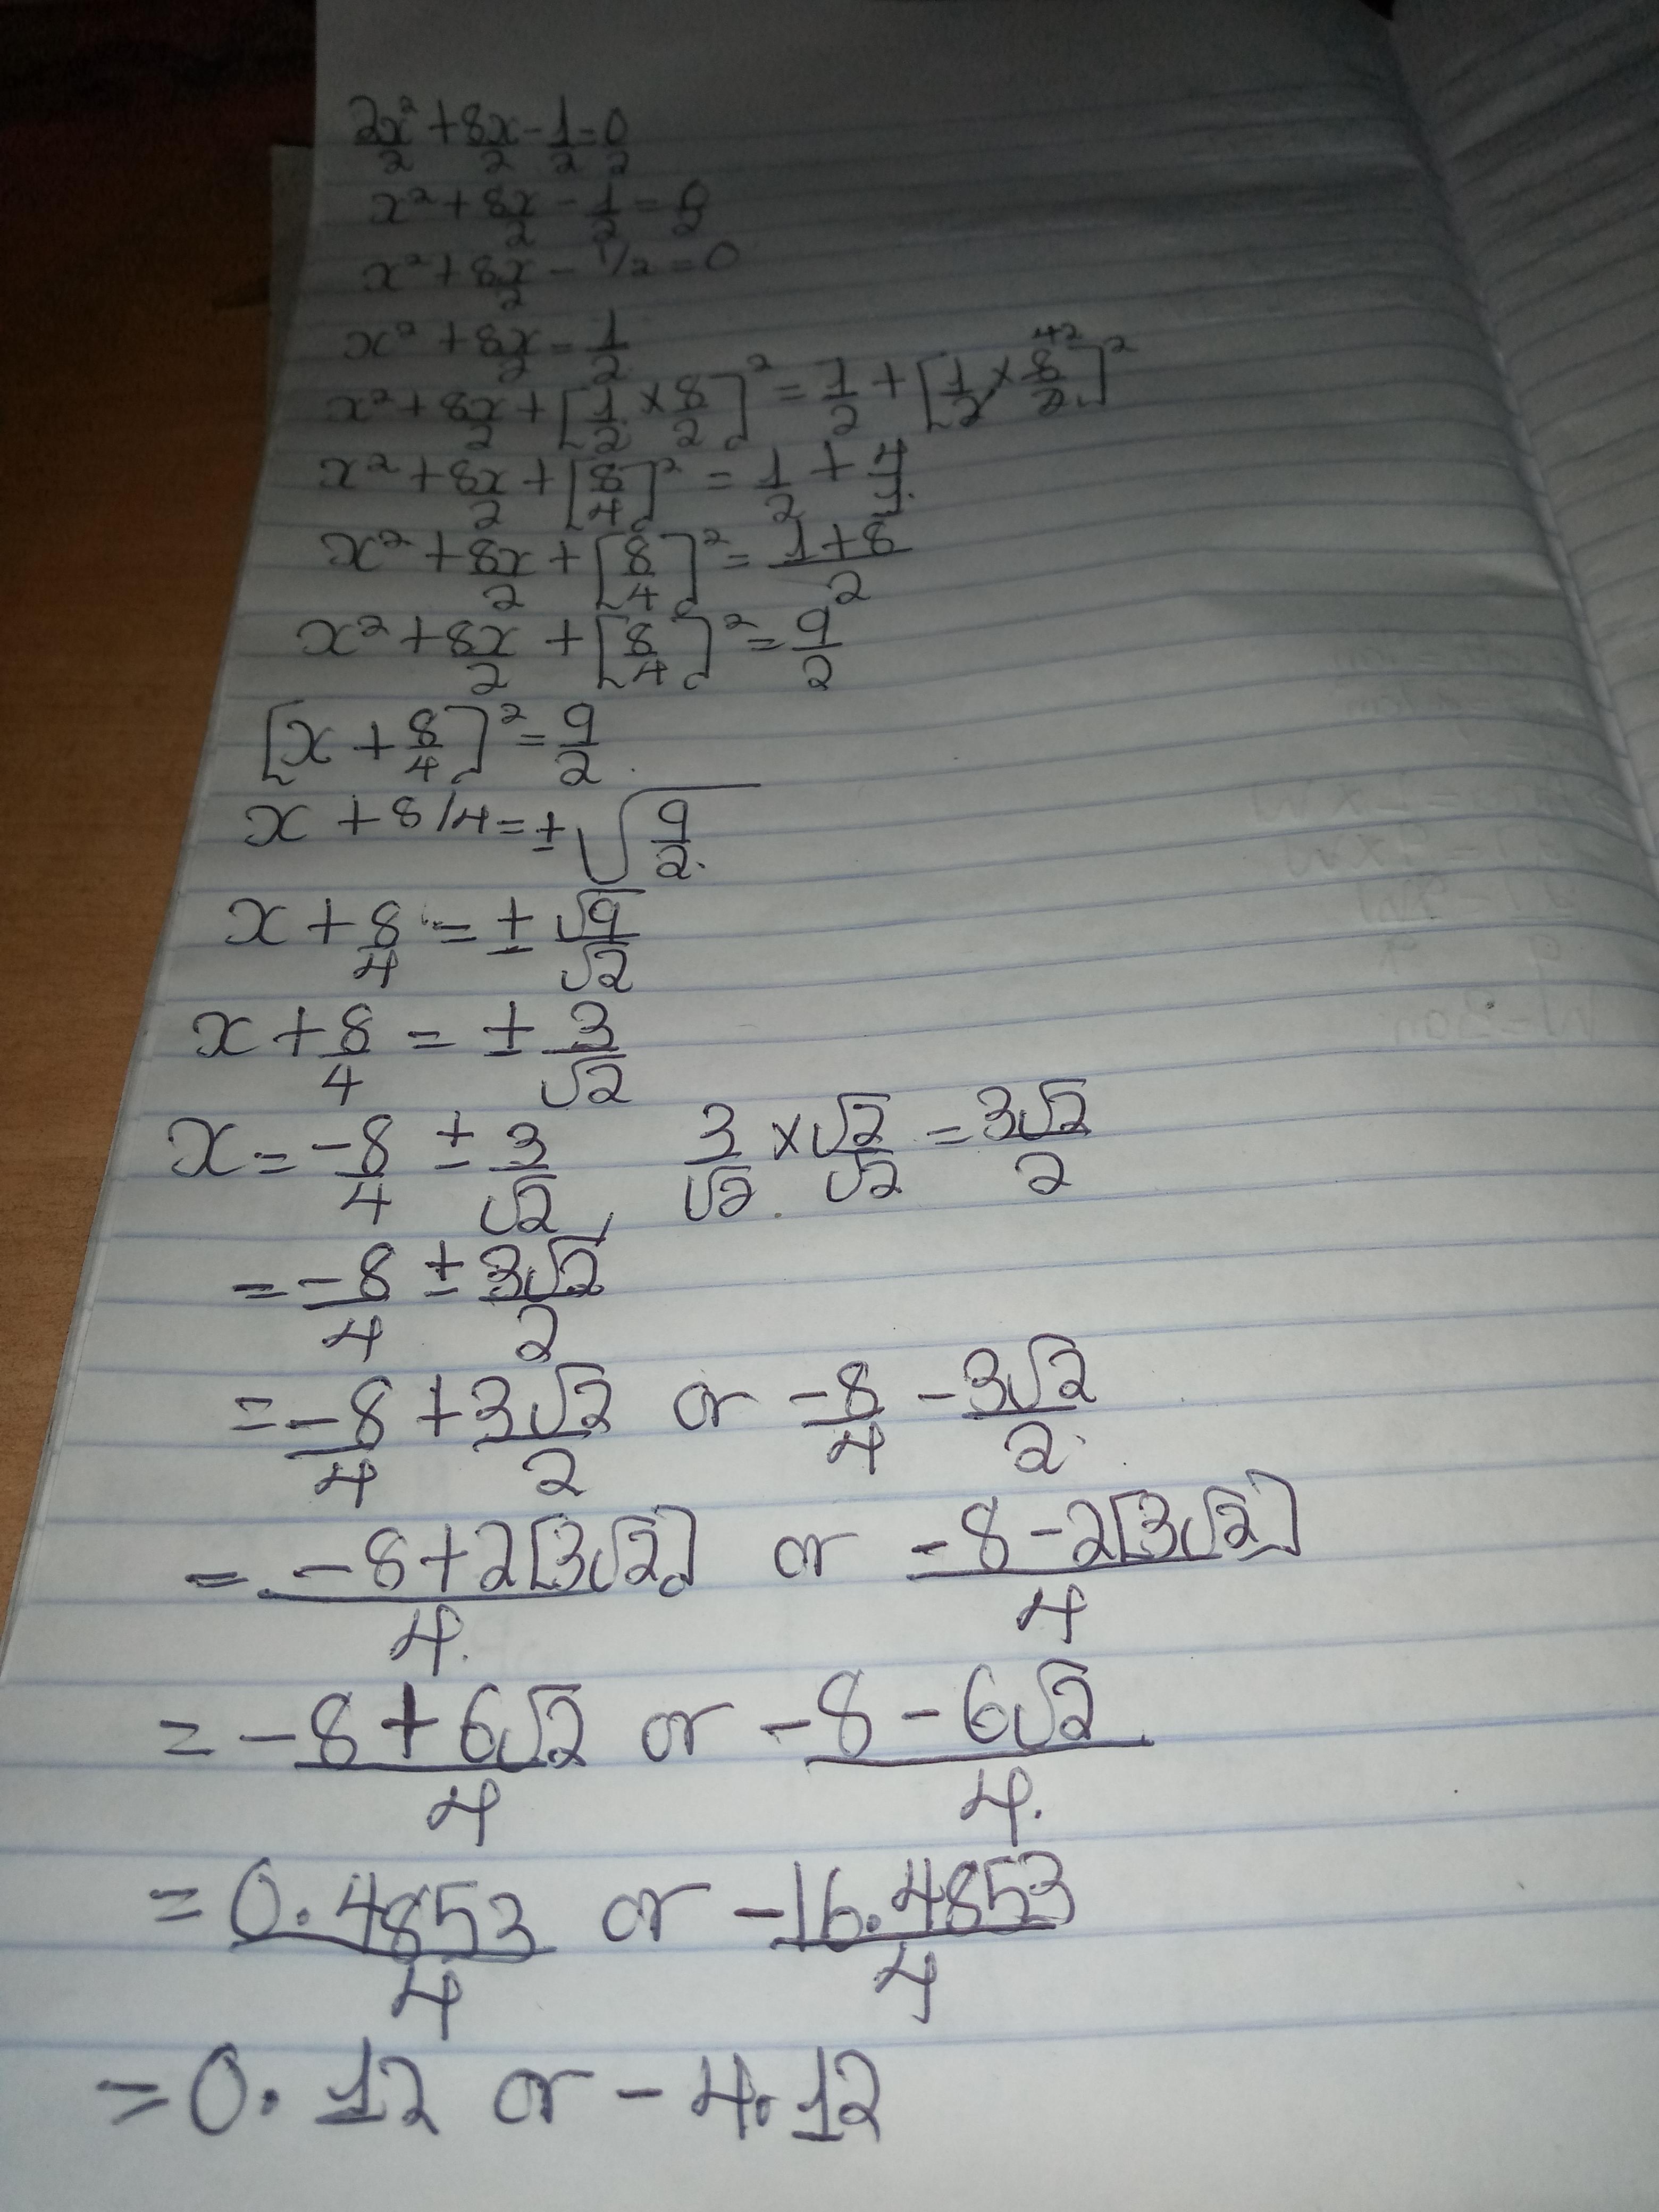 2x²/2 + 8x/2 - 1/2 = 0/2
x² + 8x/2 - 1/2 = 0/2
x² + 8x/2 - 1/2 = 0
x² + 8x/2 = 1/2
x² + 8x/2 + [1/2 × 8/2]² = 1/2 + [1/2 × 8/2]² 42
x² + 8x/2 + [8/4]² = 1/2 + 4/1
x² + 8x/2 + [8/4]² = (1+8)/2
x² + 8x/2 + [8/4]² = 9/2
[x + 8/4]² = 9/2
x + 8/4 = ± √(9/2)
x + 8/4 = ± √9/√2
x + 8/4 = ± 3/√2
x = -8/4 ± 3/√2, 3/√2 × √2/√2 = 3√2/2
= -8/4 ± 3√2/2
= -8/4 + 3√2/2 or -8/4 - 3√2/2
= (-8 + 2[3√2])/4 or (-8 - 2[3√2])/4
= (-8 + 6√2)/4 or (-8 - 6√2)/4
= 0.4853/4 or -16.4853/4
= 0.12 or -4.12